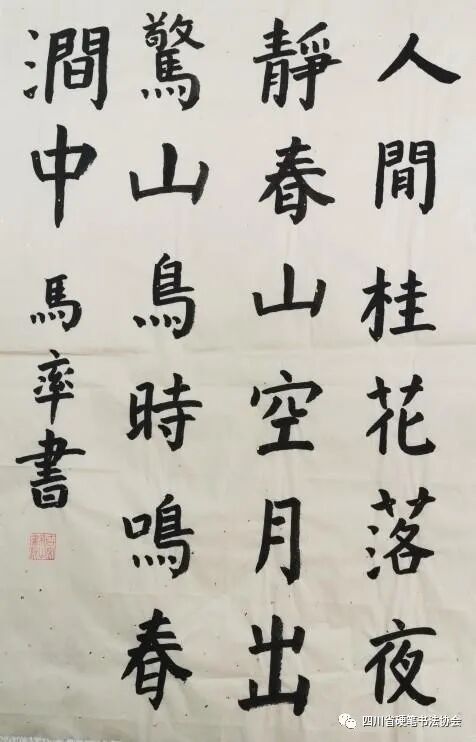 人間桂花落夜
靜春山空月出
驚山鳥時鳴春
澗中 馬率書
四川省硬笔书法协会